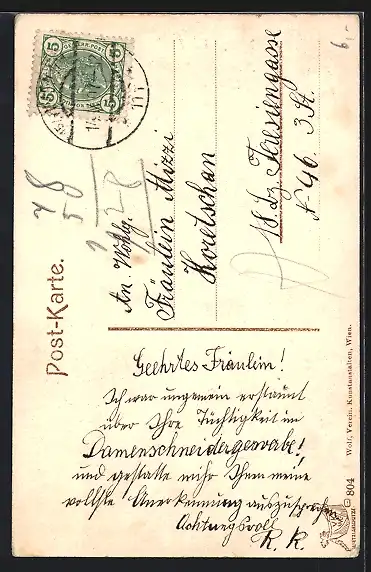 Post-Karte.
An Wohlg.
Fräulein Mizzi
Koretschan
18. Bz. Theresiengasse
N 46 3 St.
Geehrtes Fräulein!
Ich war ungemein erstaunt
über Ihre Tüchtigkeit im
Damenschneidergewerbe!
und gestatte mihr Ihnen meine
vollste Anerkennung auszusprechen
Achtungsvoll
R. K.
Wolf, Verein. Kunstanstalten, Wien.
804
5 5
5 5
III
7 8
5 8
28
6.-